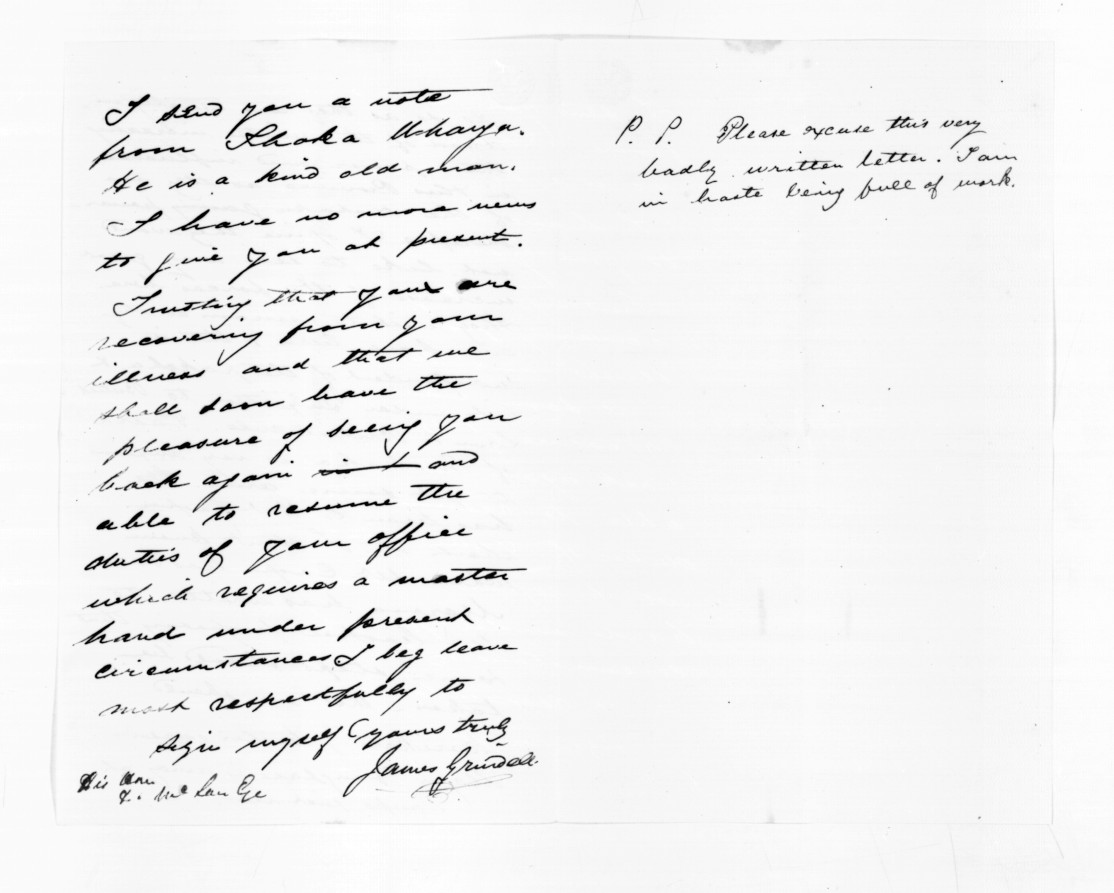 I send you a note
from
He is a kind old man.
I have no more news
to give you at present.
Trusting that you are
recovering from your
illness and that we
shall soon have the
pleasure of seeing you
back again and
able to resume the
duties of your office
which requires a master
hand under present
circumstances I beg leave
most respectfully to
sign myself yours truly
James Grindell.
His Hon
McLean
P. P. Please excuse this very
badly written letter. I am
in haste being full of work.